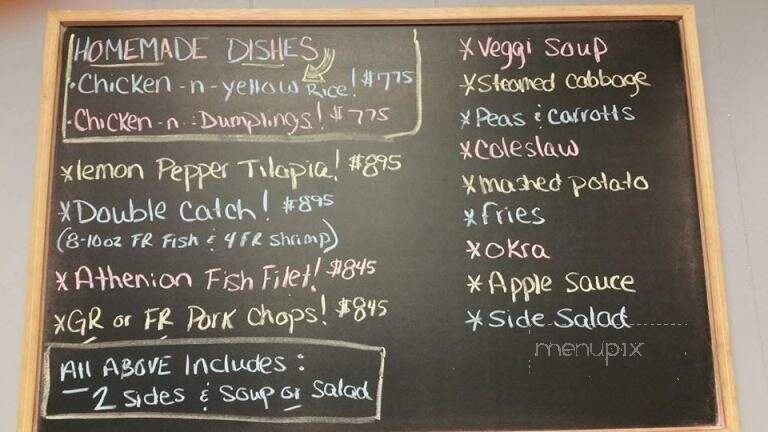 HOMEMADE DISHES
·Chicken-n-yellow Rice! $775
·Chicken-n-Dumplings! $775
*lemon Pepper Tilapia! $895
*Double Catch! $895
(8-10oz FR Fish & 4 FR shrimp)
*Athenian Fish Filet! $845
*GR or FR Pork Chops! $845
All ABOVE Includes:
2 Sides & Soup or Salad
*Veggi Soup
*Steamed Cabbage
*Peas & Carrotts
*Coleslaw
*mashed potato
*fries
*Okra
*Apple Sauce
*Side Salad
menupix